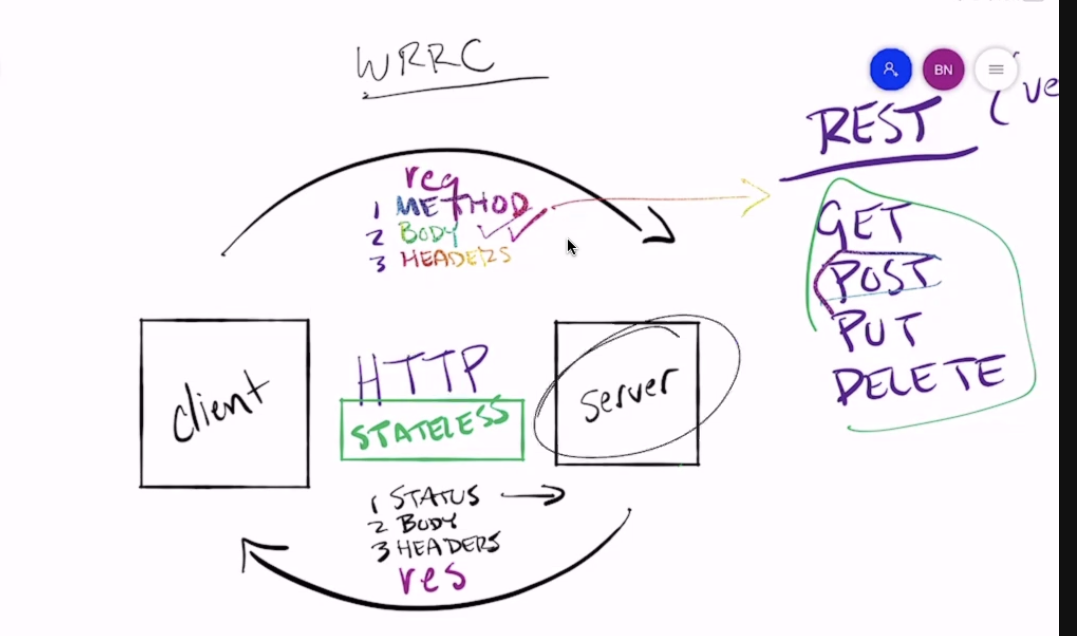 WRRC
BN
REST
(ve
req
1 METHOD
2 BODY
3 HEADERS
GET
POST
PUT
DELETE
client
HTTP
STATELESS
server
1 STATUS
2 BODY
3 HEADERS
res